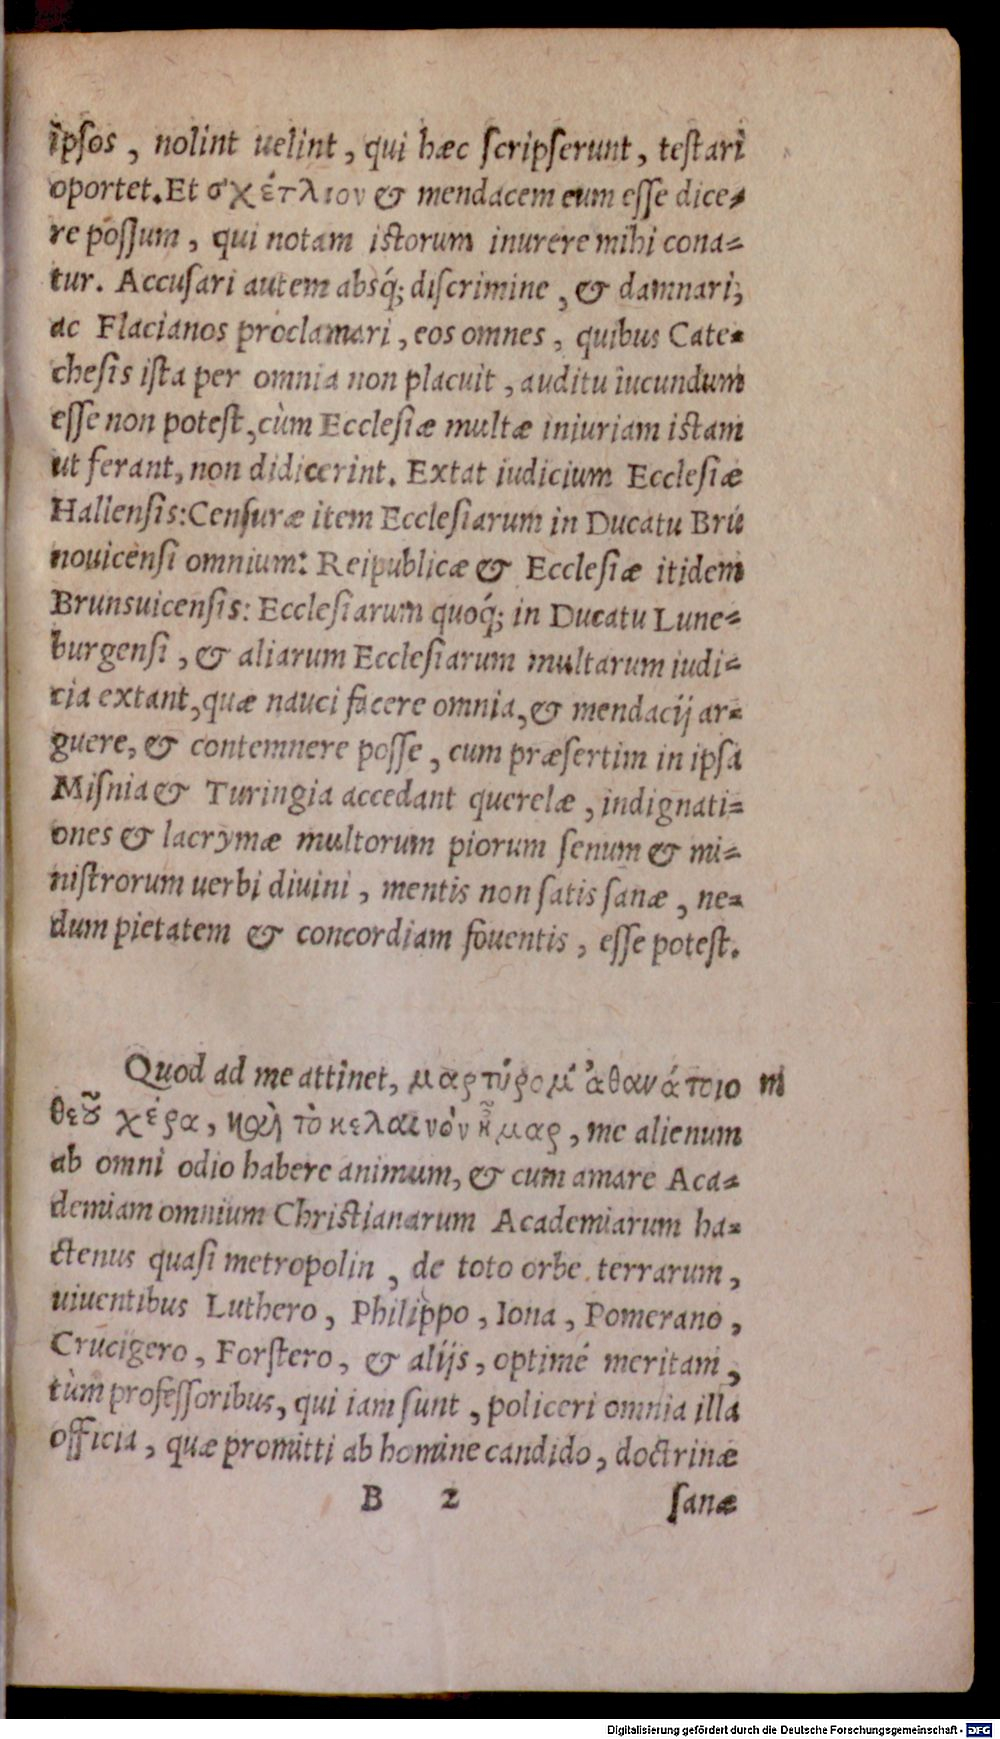 ipſos, nolint uelint, qui hæc ſcripſerunt, teſtari
oportet. Et σχέτλιον & mendacem eum eſſe dice-
re poſſum, qui notam iſtorum inurere mihi cona-
tur. Accuſari autem absq́; diſcrimine, & damnari,
ac Flacianos proclamari, eos omnes, quibus Cate-
cheſis iſta per omnia non placuit, auditu iucundum
eſſe non poteſt, cùm Eccleſiæ multæ iniuriam iſtam
ut ferant, non didicerint. Extat iudicium Eccleſiæ
Hallenſis: Cenſuræ item Eccleſiarum in Ducatu Brũ
nouicenſi omnium: Reipublicæ & Eccleſiæ itidem
Brunsuicenſis: Eccleſiarum quoq́; in Ducatu Lune-
burgenſi, & aliarum Eccleſiarum multarum iudi-
cia extant, quæ nauci facere omnia, & mendacij ar-
guere, & contemnere poſſe, cum præſertim in ipſa
Miſnia & Turingia accedant querelæ, indignati-
ones & lacrymæ multorum piorum ſenum & mi-
niſtrorum uerbi diuini, mentis non ſatis ſanæ, ne-
dum pietatem & concordiam fouentis, eſſe poteſt.
Quod ad me attinet, μαρτύρομ' ἀθανάτοιο m
θεοῦ χέρα, καὶ τὸ κελαινὸν ἦμαρ, me alienum
ab omni odio habere animum, & cum amare Aca-
demiam omnium Chriſtianarum Academiarum ha-
ctenus quaſi metropolin, de toto orbe terrarum,
uiuentibus Luthero, Philippo, Iona, Pomerano,
Crucigero, Forſtero, & alijs, optimé meritam,
tùm profeſſoribus, qui iam ſunt, policeri omnia illa
officia, quæ promitti ab homine candido, doctrinæ
B 2 ſanæ
Digitalisierung gefördert durch die Deutsche Forschungsgemeinschaft - DFG